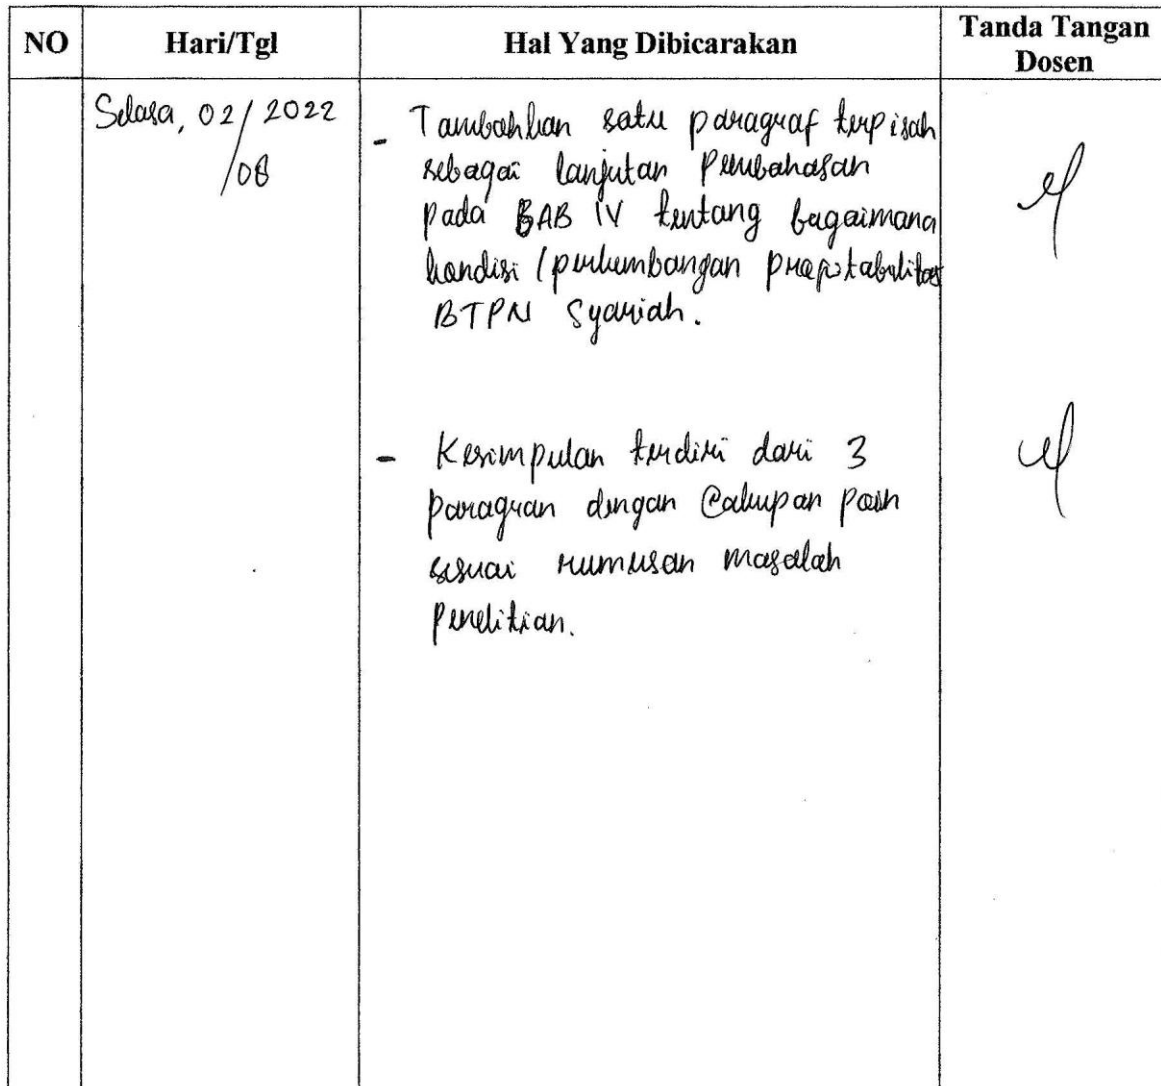 NO Hari/Tgl Hal Yang Dibicarakan Tanda Tangan Dosen
Selasa, 02/2022
/08
- Tambahkan satu paragraf terpisah
sebagai lanjutan Pembahasan
pada BAB IV tentang bagaimana
kondisi/perkembangan profitabilitas
BTPN Syariah.
- Kesimpulan terdiri dari 3
paragraan dengan Cakupan
sesuai rumusan masalah
penelitian.